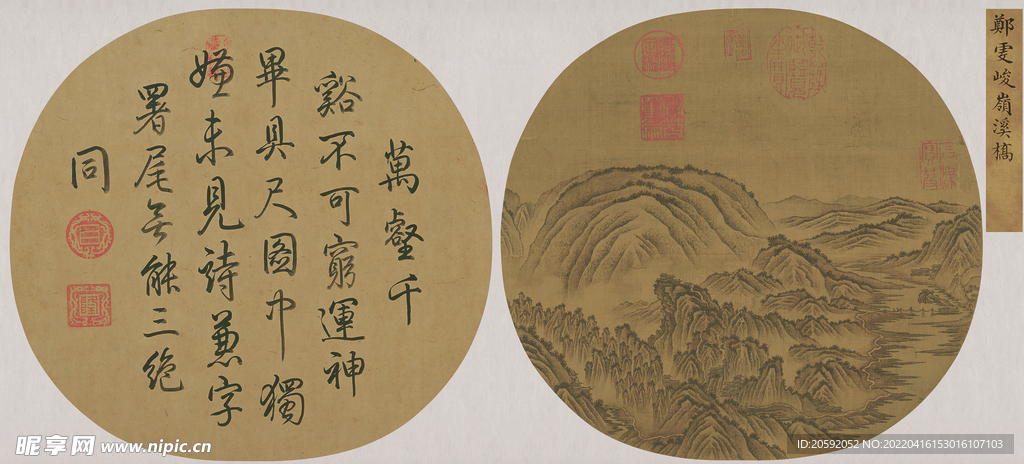 鄭虔峻嶺溪橋
萬壑千
谿不可窮運神
畢具尺圖中獨
嫌未見詩兼字
署尾無能三絕
同
昵享网 www.nipic.cn
ID:20592052 NO:20220416153016107103